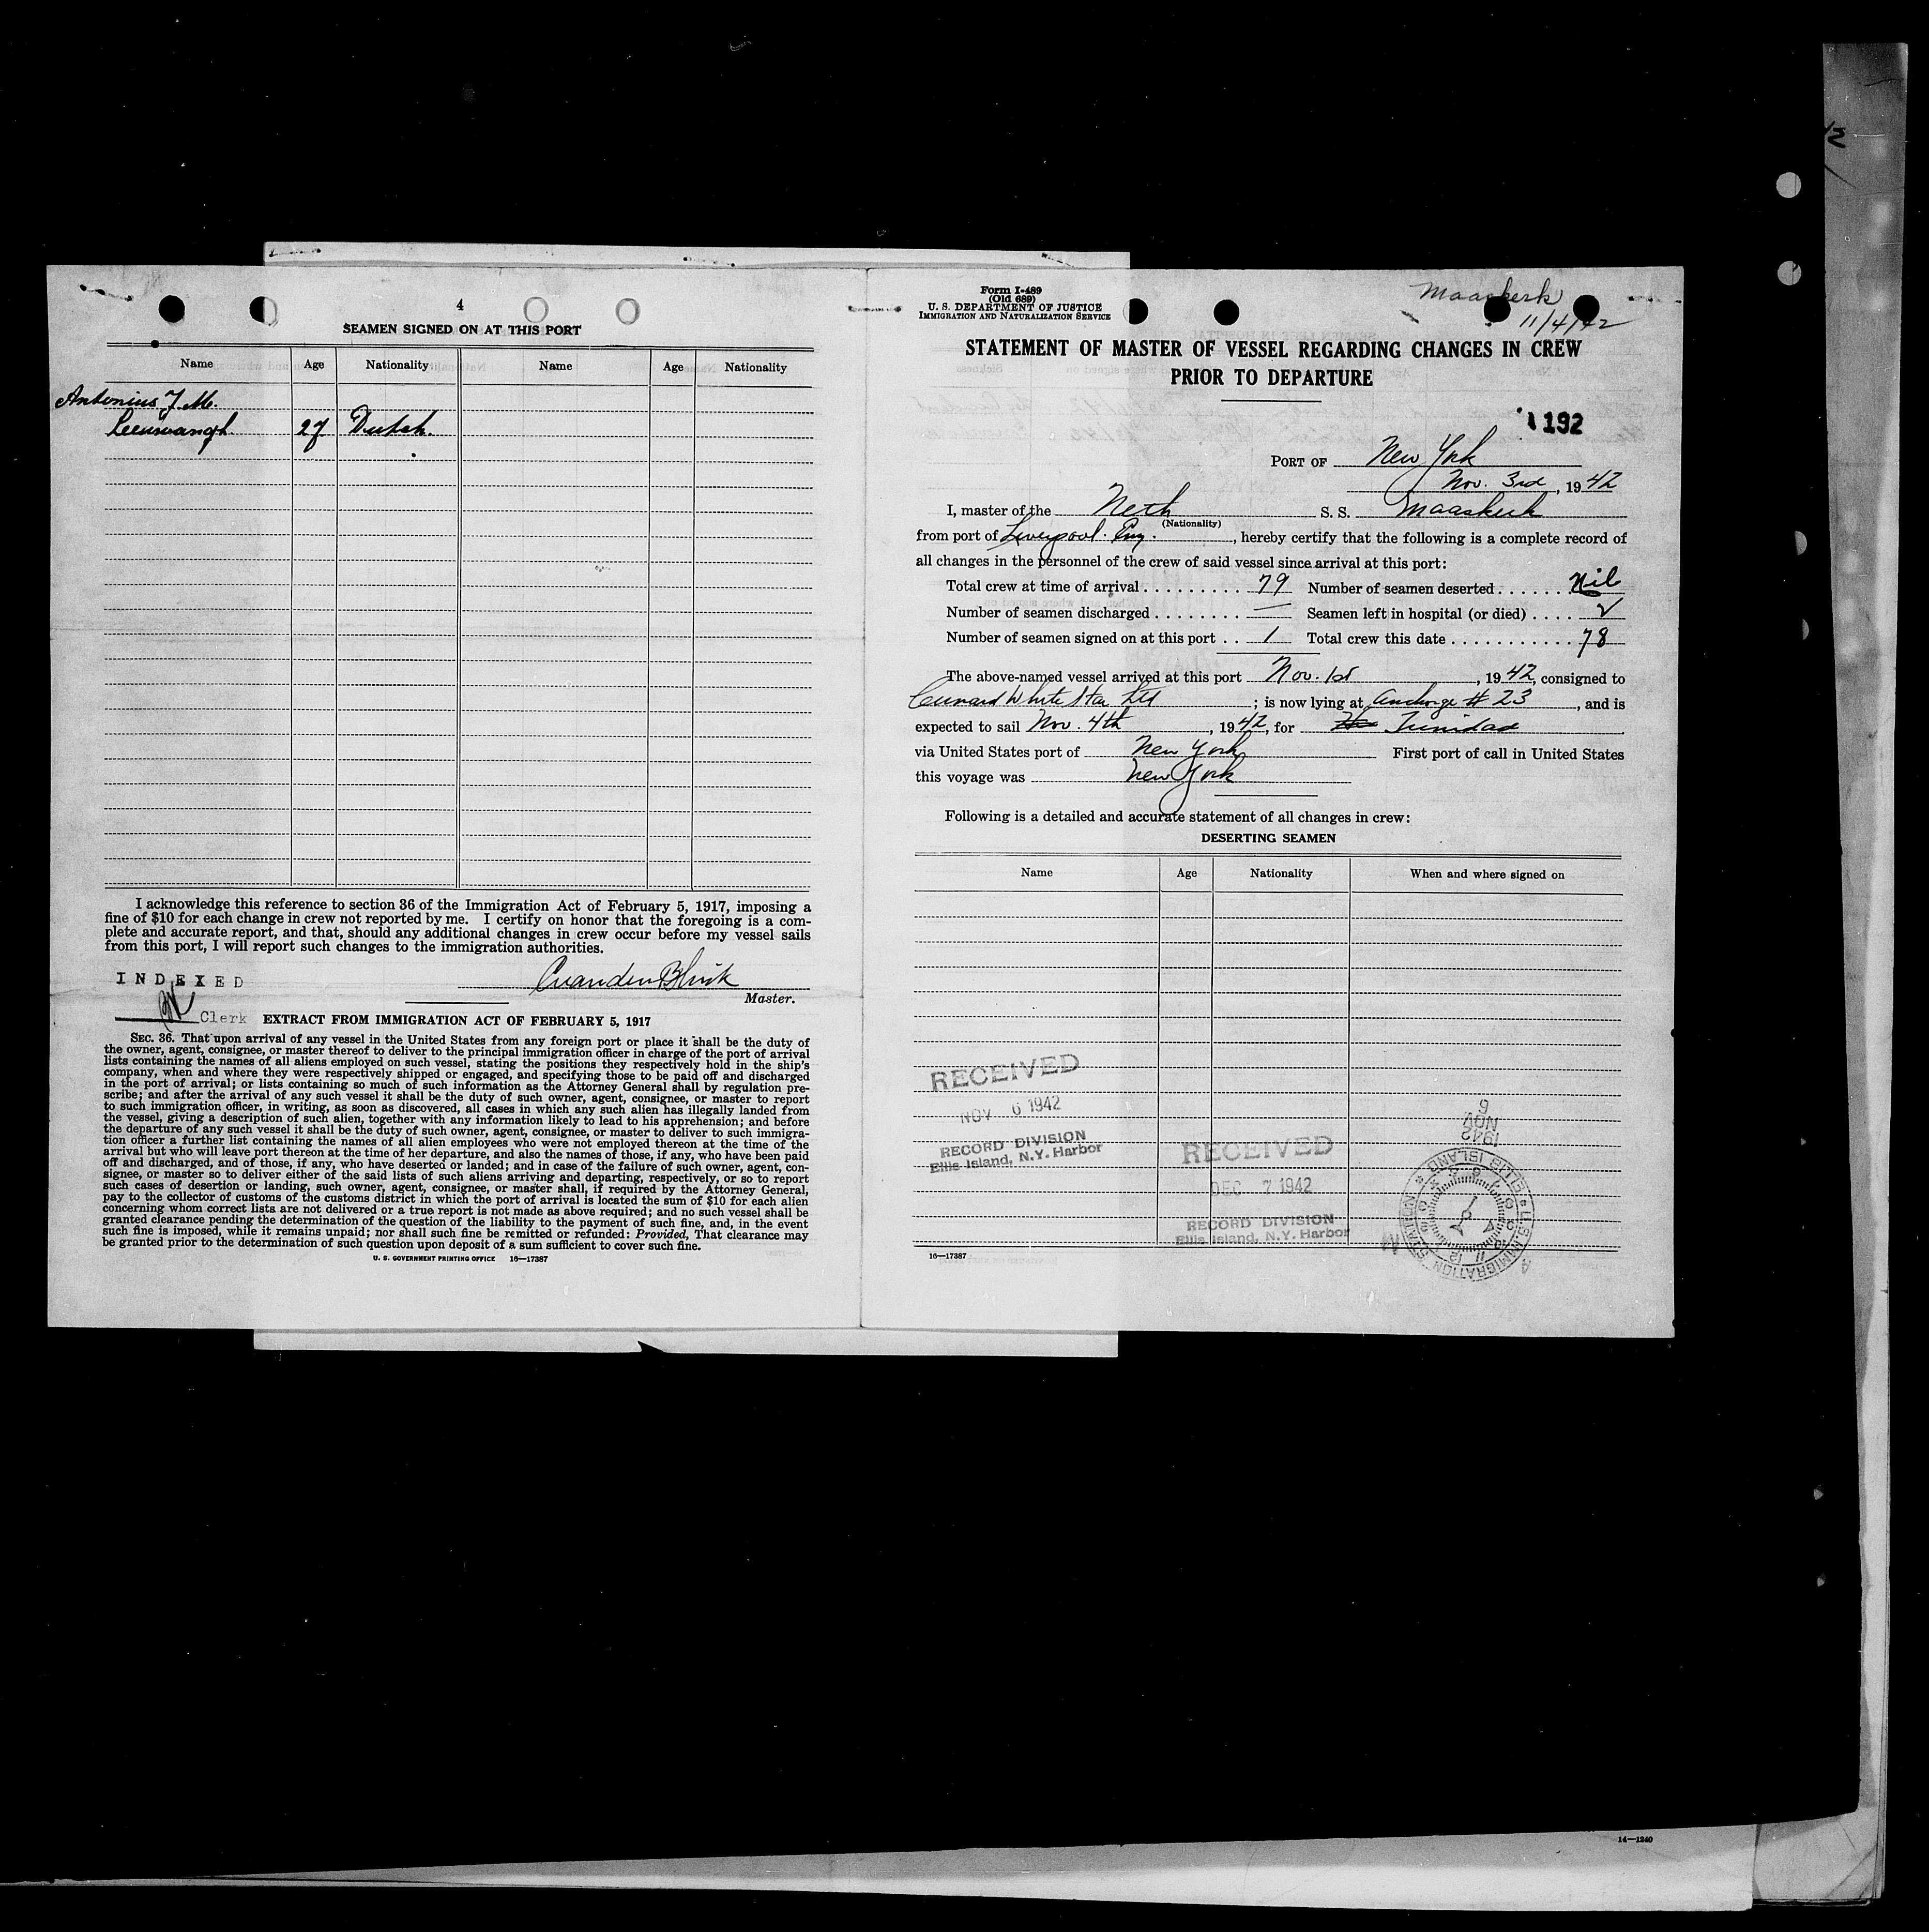 4
SEAMEN SIGNED ON AT THIS PORT
Name Age Nationality Name Age Nationality
Antonius J. M.
Leeuwangh 27 Dutch.
I acknowledge this reference to section 36 of the Immigration Act of February 5, 1917, imposing a
fine of $10 for each change in crew not reported by me. I certify on honor that the foregoing is a com-
plete and accurate report, and that, should any additional changes in crew occur before my vessel sails
from this port, I will report such changes to the immigration authorities.
INDEXED
Master.
Clerk
EXTRACT FROM IMMIGRATION ACT OF FEBRUARY 5, 1917
SEC. 36. That upon arrival of any vessel in the United States from any foreign port or place it shall be the duty of
the owner, agent, consignee, or master thereof to deliver to the principal immigration officer in charge of the port of arrival
lists containing the names of all aliens employed on such vessel, stating the positions they respectively hold in the ship's
company, when and where they were respectively shipped or engaged, and specifying those to be paid off and discharged
in the port of arrival; or lists containing so much of such information as the Attorney General shall by regulation pre-
scribe; and after the arrival of any such vessel it shall be the duty of such owner, agent, consignee, or master to report
to such immigration officer, in writing, as soon as discovered, all cases in which any such alien has illegally landed from
the vessel, giving a description of such alien, together with any information likely to lead to his apprehension; and before
the departure of any such vessel it shall be the duty of such owner, agent, consignee, or master to deliver to such immigra-
tion officer a further list containing the names of all alien employees who were not employed thereon at the time of the
arrival but who will leave port thereon at the time of her departure, and also the names of those, if any, who have been paid
off and discharged, and of those, if any, who have deserted or landed; and in case of the failure of such owner, agent, con-
signee, or master so to deliver either of the said lists of such aliens arriving and departing, respectively, or so to report
such cases of desertion or landing, such owner, agent, consignee, or master shall, if required by the Attorney General,
pay to the collector of customs of the customs district in which the port of arrival is located the sum of $10 for each alien
concerning whom correct lists are not delivered or a true report is not made as above required; and no such vessel shall be
granted clearance pending the determination of the question of the liability to the payment of such fine, and, in the event
such fine is imposed, while it remains unpaid; nor shall such fine be remitted or refunded: Provided, That clearance may
be granted prior to the determination of such question upon deposit of a sum sufficient to cover such fine.
U. S. GOVERNMENT PRINTING OFFICE 16—17387
Form I-489
(Old 689)
U. S. DEPARTMENT OF JUSTICE
IMMIGRATION AND NATURALIZATION SERVICE
Maaskerk
11/4/42
STATEMENT OF MASTER OF VESSEL REGARDING CHANGES IN CREW
PRIOR TO DEPARTURE
1192
PORT OF New York
Nov. 3rd, 1942
I, master of the Neth S. S. Maaskerk
(Nationality)
from port of Liverpool. Eng., hereby certify that the following is a complete record of
all changes in the personnel of the crew of said vessel since arrival at this port:
Total crew at time of arrival . . . . . . . . . . 79 Number of seamen deserted . . . . . . . Nil
Number of seamen discharged . . . . . . . . — Seamen left in hospital (or died) . . . . 2
Number of seamen signed on at this port . . 1 Total crew this date . . . . . . . . . . . . 78
The above-named vessel arrived at this port Nov. 1st, 1942, consigned to
Cunard White Star Ltd; is now lying at Anchorge # 23, and is
expected to sail Nov. 4th, 1942, for Trinidad
via United States port of New York First port of call in United States
this voyage was New York
Following is a detailed and accurate statement of all changes in crew:
DESERTING SEAMEN
Name Age Nationality When and where signed on
RECEIVED
NOV 6 1942
RECORD DIVISION
Ellis Island, N.Y. Harbor
RECEIVED
DEC 7 1942
RECORD DIVISION
Ellis Island, N.Y. Harbor
6
NOV
1942
U.S. IMMIGRATION STATION ELLIS ISLAND
16—17387
14—1240